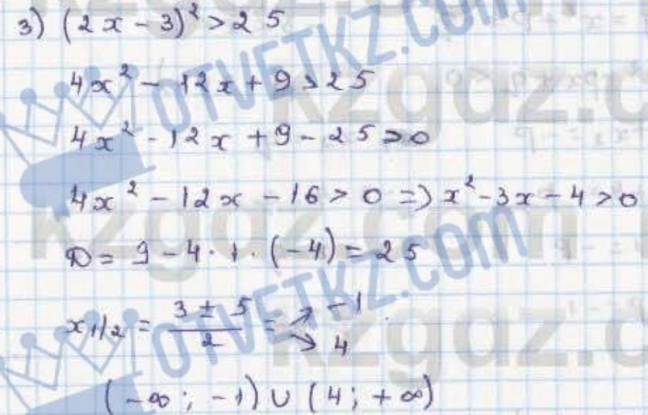 3) (2x - 3)² > 25
4x² - 12x + 9 > 25
4x² - 12x + 9 - 25 > 0
4x² - 12x - 16 > 0 => x² - 3x - 4 > 0
D = 9 - 4 · 1 · (-4) = 25
x₁/₂ = (3 ± 5)/2 = ↗ -1 ↘ 4
(-∞; -1) ∪ (4; +∞)
OTVETKZ.COM
kzgaz.com
OTVETKZ.COM
kzgaz.com
OTVETKZ.COM
kzgaz.com